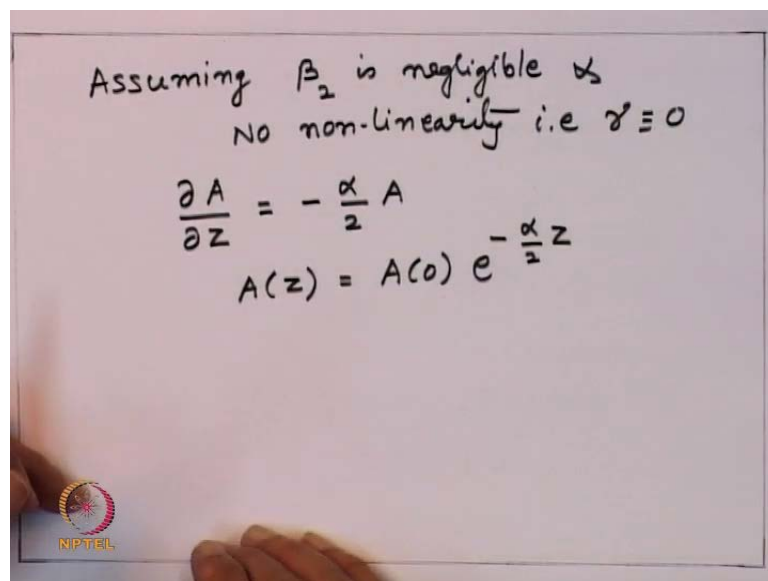 Assuming β₂ is negligible &
No non-linearity i.e γ ≡ 0
∂A/∂z = - α/2 A
A(z) = A(0) e^{- α/2 z}
NPTEL